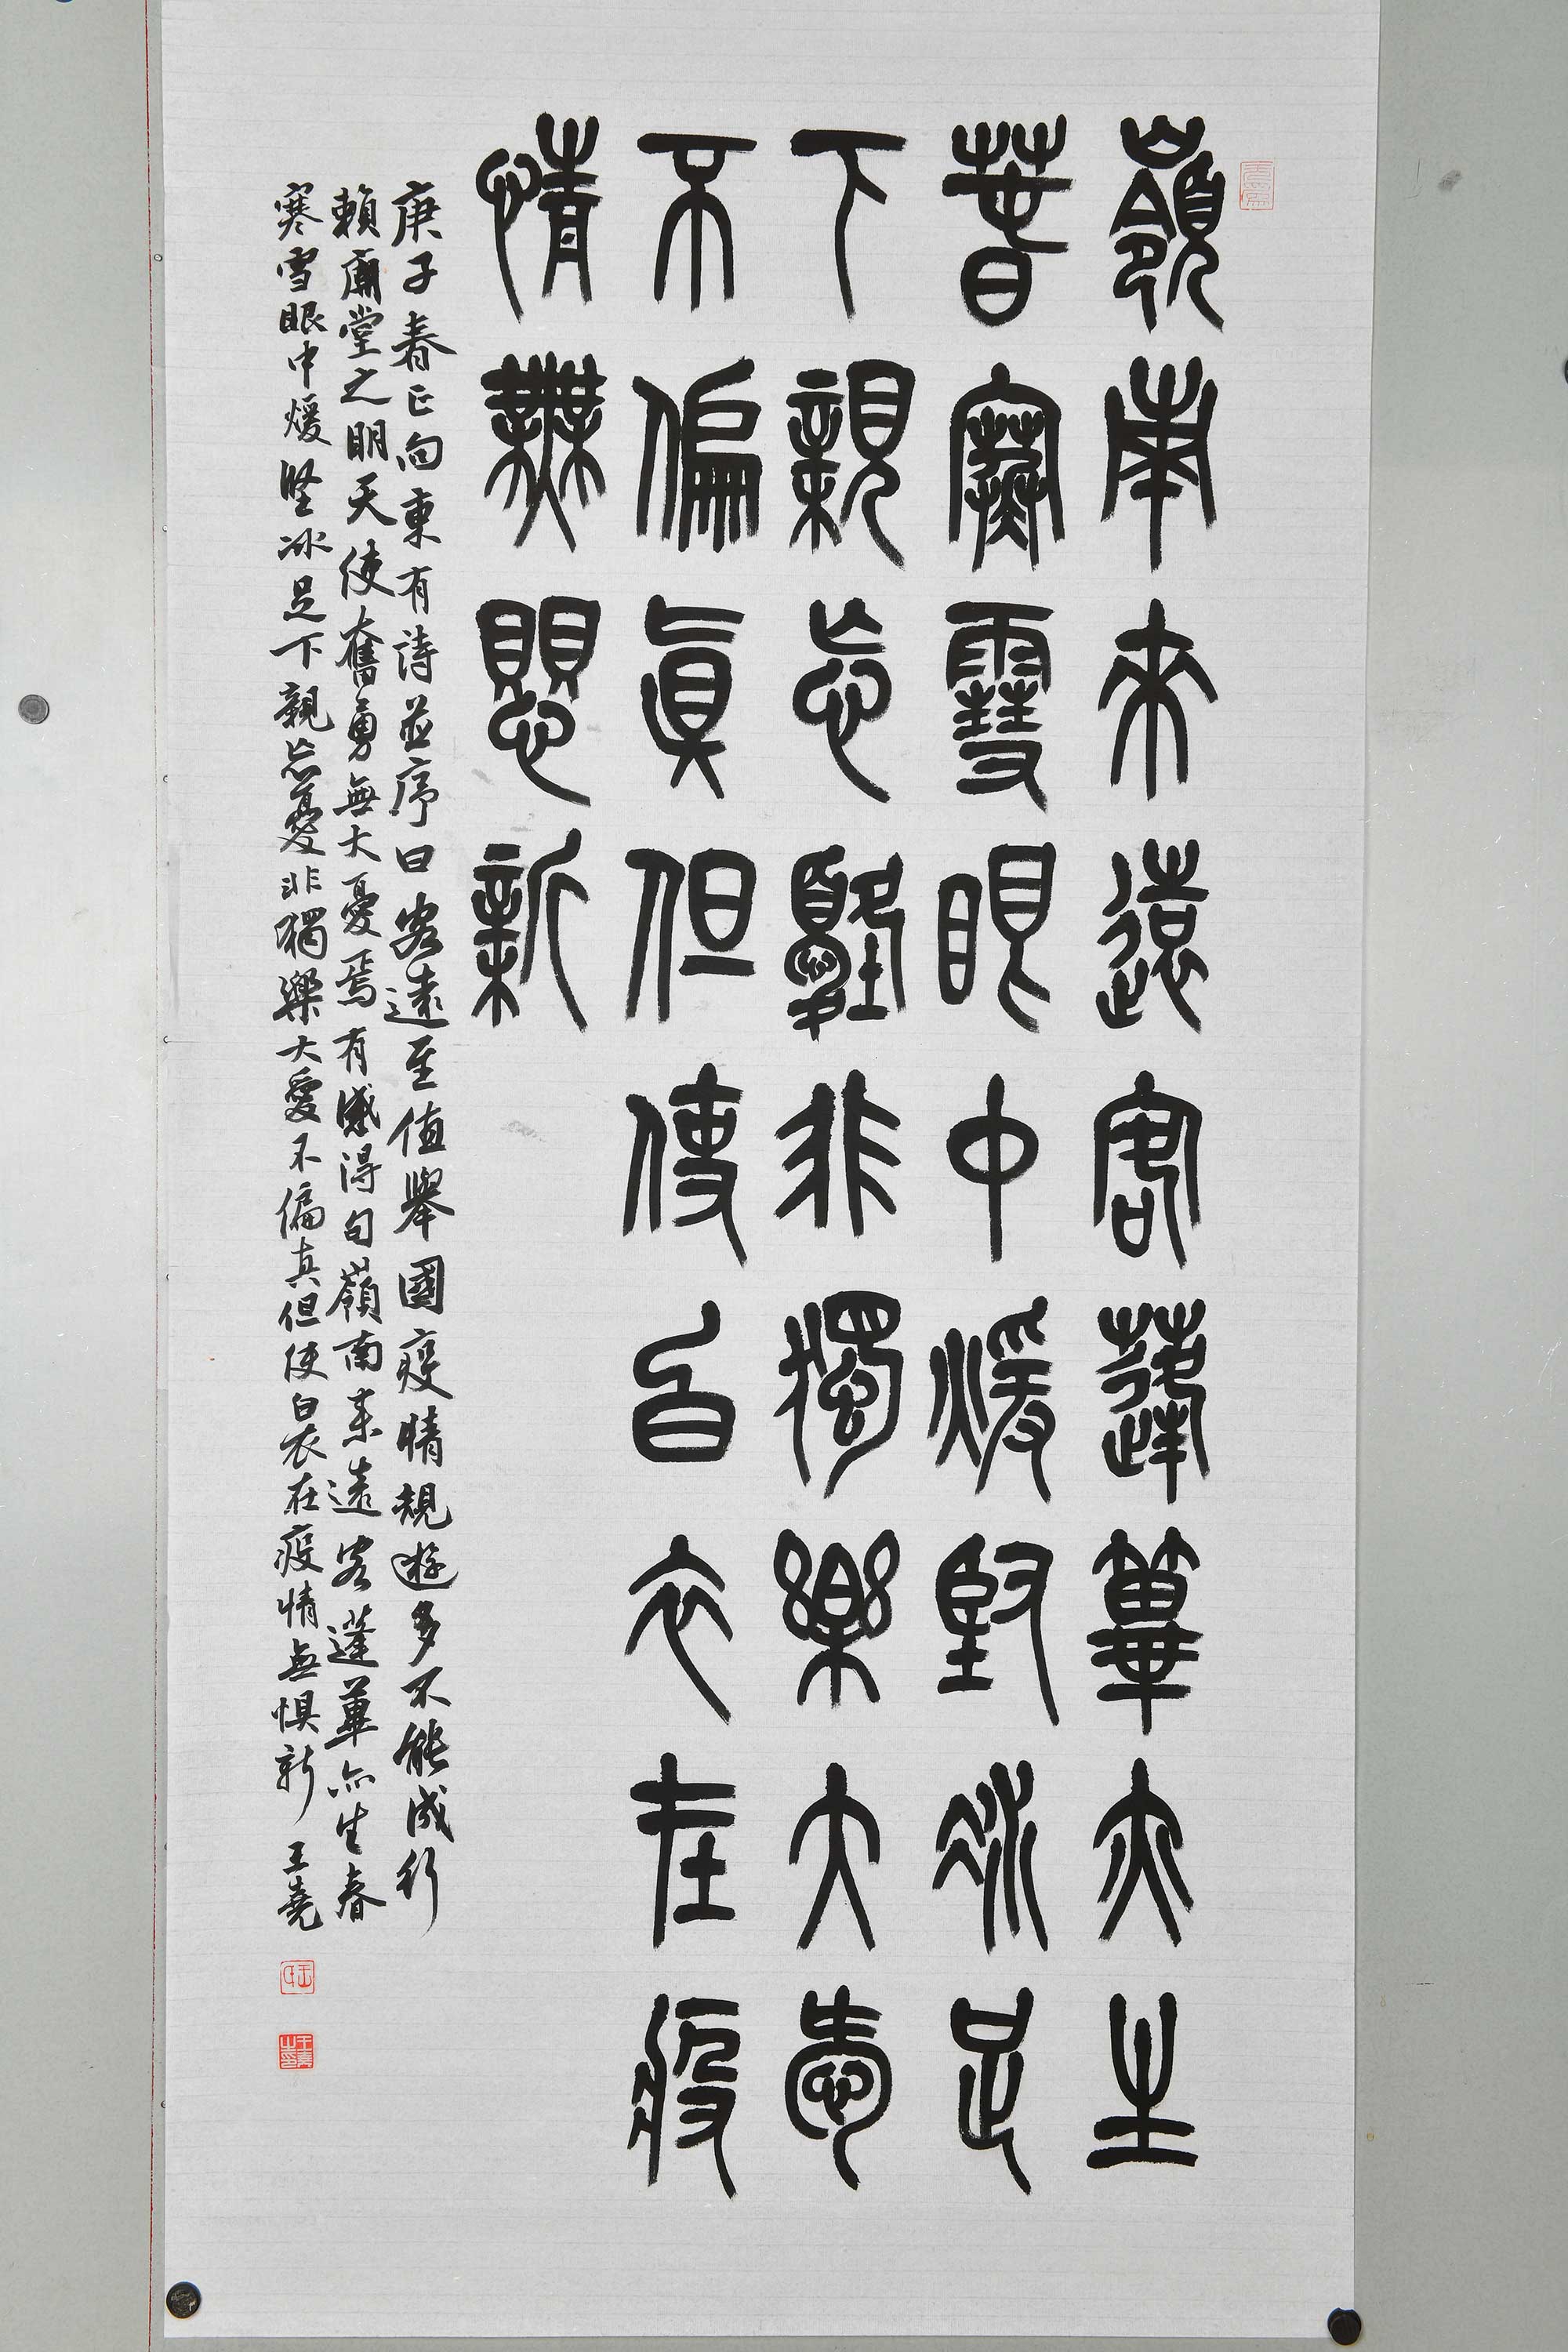 嶺南來遠客蓬蓽亦生
春寒雪眼中煖堅冰足
下親忘憂非獨樂大愛
不偏真但使白衣在疫
情無懼新
庚子春正向東有詩並序曰客遠至值舉國疫情規遊多不能成行
賴廟堂之明天使奮勇無大憂焉有感得句嶺南來遠客蓬蓽亦生春
寒雪眼中煖堅冰足下親忘憂非獨樂大愛不偏真但使白衣在疫情無懼新 王堯